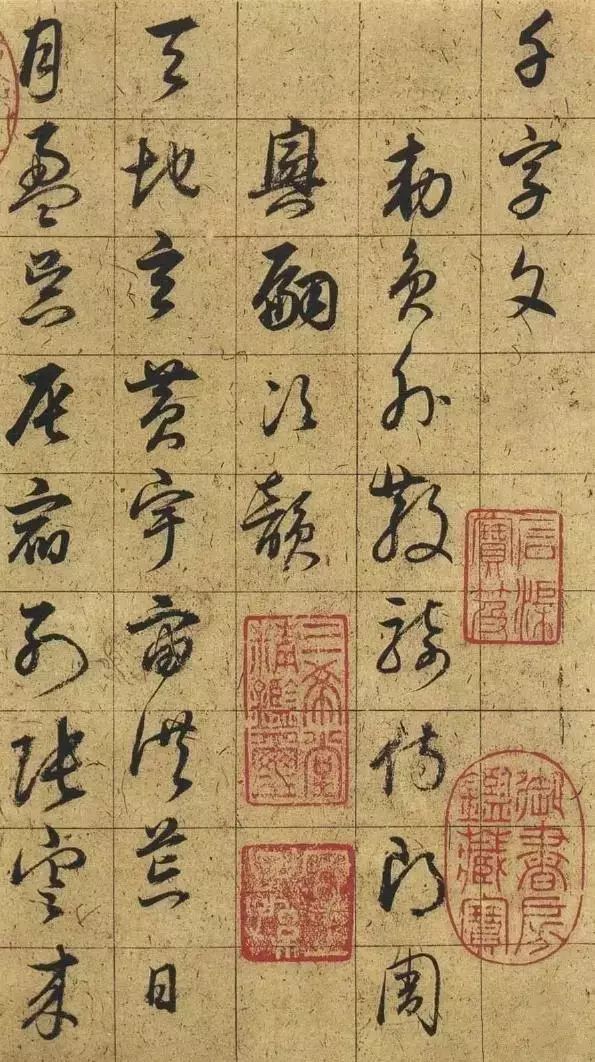 千字文
石渠寶笈
御書房鑑藏寶
勅員外散騎侍郎周
興嗣次韻
三希堂精鑑璽
天地玄黃宇宙洪荒日
月盈昃辰宿列張寒來